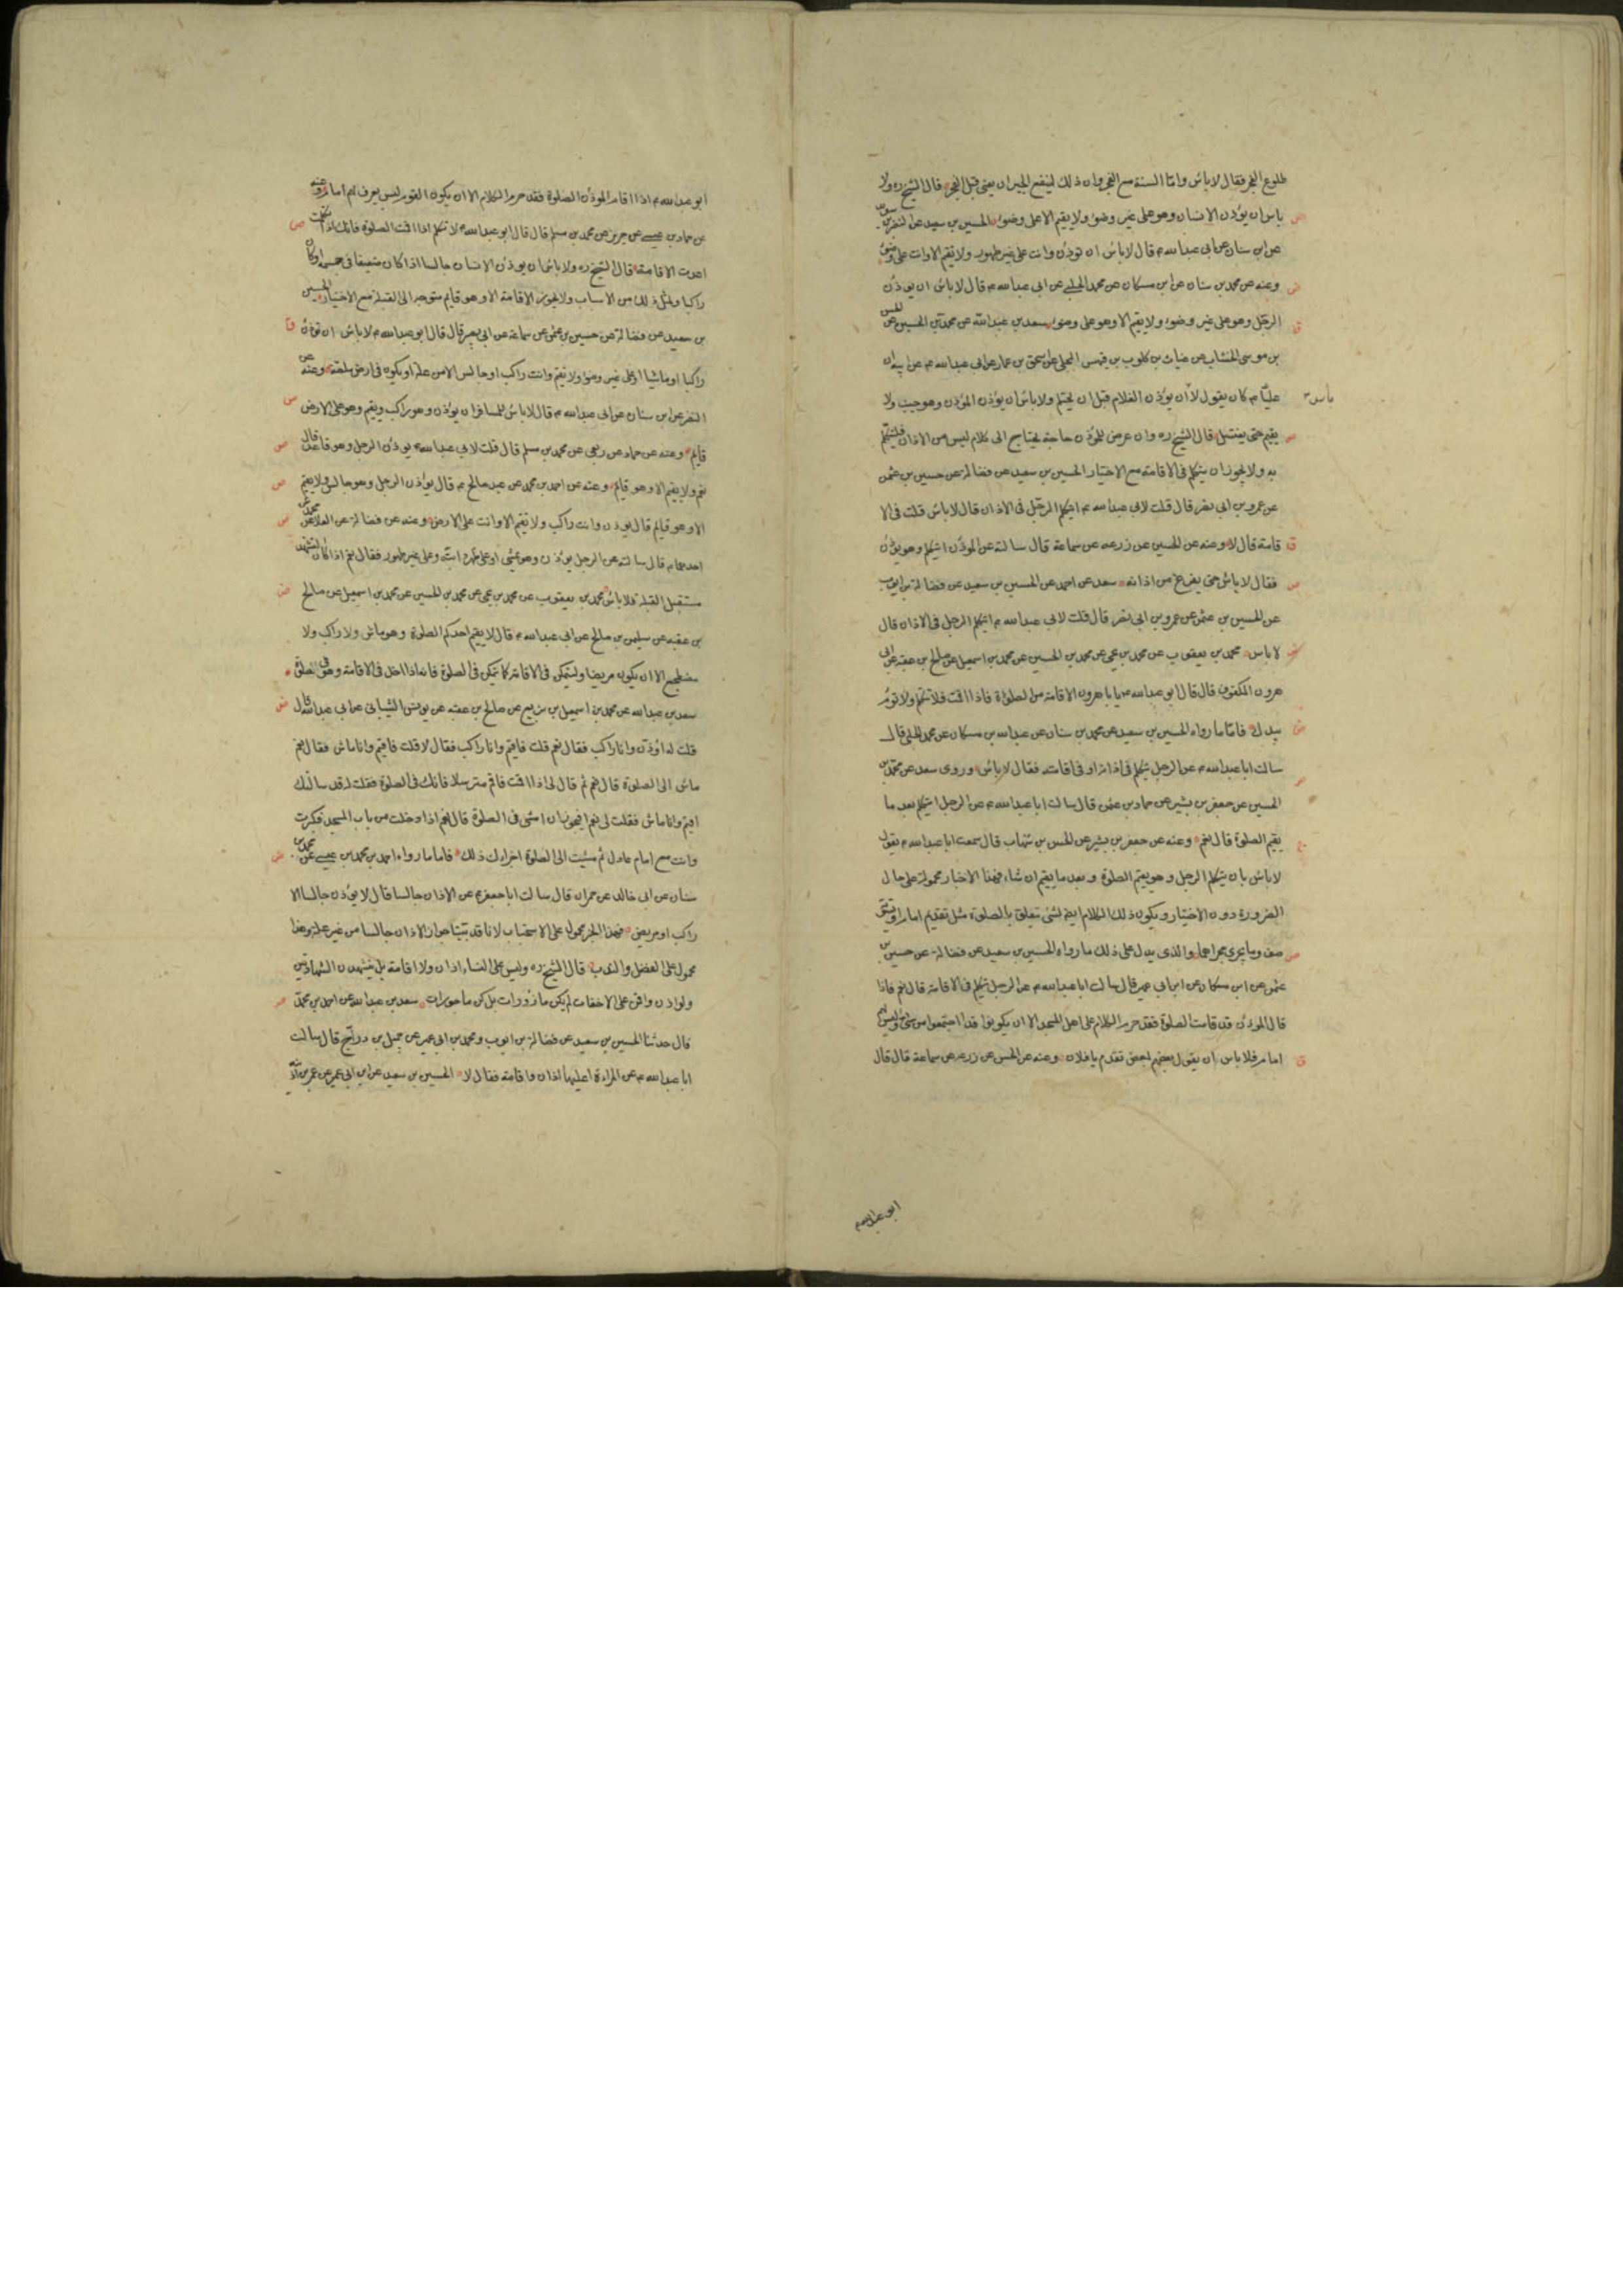 طلوع الفجر فقال لا باس واما السنة مع الفجر وان ذلك لينفع الجيران يعني قبل الفجر قال الشيخ ره ولا
باس ان يؤذن الانسان وهو على غير وضوء ولا يقيم الا على وضوء الحسين بن سعيد عن النضر بن سويد
عن ابن سنان عن ابي عبدالله ع قال لا باس ان تؤذن وانت على غير طهور ولا تقيم الا وانت على وضوء
وعنه عن محمد بن سنان عن ابن مسكان عن محمد الحلبي عن ابي عبدالله ع قال لا باس ان يوذن
الرجل وهو على غير وضوء ولا يقيم الا وهو على وضوء سعد بن عبدالله عن محمد بن الحسين عن الحسن
بن موسى الخشاب عن غياث بن كلوب بن فيهس البجلي عن اسحق بن عمار عن ابي عبدالله ع عن ابيه ان
عليا ع كان يقول لا ان يؤذن الغلام قبل ان يحتلم ولا باس ان يؤذن المؤذن وهو جنب ولا
باس
يقيم حتى يغتسل قال الشيخ ره وان عرض للمؤذن حاجة يحتاج الى كلام ليس من الاذان فليتكلم
به ولا يجوز ان يتكلم في الاقامة مع الاختيار الحسين بن سعيد عن فضالة عن حسين بن عثمن
عن عمرو بن ابي نصر قال قلت لابي عبدالله ع ايتكلم الرجل في الاذان قال لا باس قلت في الا
قامة قال لا وعنه عن الحسين عن زرعه عن سماعة قال سالته عن المؤذن ايتكلم وهو يؤذن
فقال لا باس حتى يفرغ من اذانه سعد عن احمد عن الحسين بن سعيد عن فضالة بن ايوب
عن الحسين بن عثمن عن عمرو بن ابي نصر قال قلت لابي عبدالله ع ايتكلم الرجل في الاذان قال
لا باس محمد بن يعقوب عن محمد بن يحيى عن محمد بن الحسين عن محمد بن اسمعيل عن صالح بن عقبه عن ابي
هرون المكفوف قال قال ابو عبدالله ع يا با هرون الاقامة من الصلوة فاذا اقمت فلا تتكلم ولا تؤم
بيدك فاما ما رواه الحسين بن سعيد عن محمد بن سنان عن عبدالله بن مسكان عن محمد الحلبي قال
سالت ابا عبدالله ع عن الرجل يتكلم في اذانه او في اقامته فقال لا باس وروى سعد عن محمد بن
الحسين عن جعفر بن بشير عن حماد بن عثمن قال سالت ابا عبدالله ع عن الرجل ايتكلم بعد ما
يقيم الصلوة قال نعم وعنه عن جعفر بن بشير عن الحسن بن شهاب قال سمعت ابا عبدالله ع يقول
لا باس بان يتكلم الرجل وهو يقيم الصلوة وبعد ما يقيم ان شاء فهذه الاخبار محمولة على حال
الضرورة دون الاختيار ويكون ذلك الكلام ايضا لشئ يتعلق بالصلوة مثل تقديم امام او تسوية
صف وما يجري مجراهما والذي يدل على ذلك ما رواه الحسين بن سعيد عن فضالة عن حسين بن
عثمن عن ابن مسكان عن ابن ابي عمير قال سالت ابا عبدالله ع عن الرجل يتكلم في الاقامة قال نعم فاذا
قال المؤذن قد قامت الصلوة فقد حرم الكلام على اهل المسجد الا ان يكونوا قد اجتمعوا من شتى وليس لهم
امام فلا باس ان يقول بعضهم لبعض تقدم يا فلان وعنه عن الحسن عن زرعه عن سماعة قال قال
ابو عبدالله ع
ابو عبدالله ع اذا اقام المؤذن الصلوة فقد حرم الكلام الا ان يكون القوم ليس يعرف لهم امام وعنه
عن حماد بن عيسى عن حريز عن محمد بن مسلم قال قال ابو عبدالله ع لا تتكلم اذا اقمت الصلوة فانك اذا تكلمت
اعدت الاقامة قال الشيخ ره ولا باس ان يوذن الانسان جالسا اذا كان ضعيفا في جسمه او كان
راكبا ولمثل ذلك من الاسباب ولا يجوز الاقامة الا وهو قايم متوجه الى القبلة مع الاختيار الحسين
بن سعيد عن فضالة عن حسين بن عثمن عن سماعة عن ابي بصير قال قال ابو عبدالله ع لا باس ان تؤذن
راكبا او ماشيا او على غير وضوء ولا تقم وانت راكب او جالس الا من علة او يكون في ارض ملصة وعنه عن
النضر عن ابن سنان عن ابي عبدالله ع قال لا باس للمسافر ان يؤذن وهو راكب ويقيم وهو على الارض
قايم وعنه عن حماد عن ربعي عن محمد بن مسلم قال قلت لابي عبدالله ع يوذن الرجل وهو قاعد قال
نعم ولا يقيم الا وهو قايم وعنه عن احمد بن محمد عن عبد صالح ع قال يؤذن الرجل وهو جالس ولا يقيم
الا وهو قايم قال يوذن وانت راكب ولا تقيم الا وانت على الارض وعنه عن فضالة عن العلا عن محمد عن
احدهما ع قال سالته عن الرجل يوذن وهو يمشي او على ظهر دابته وعلى غير طهور فقال نعم اذا كان التشهد
مستقبل القبلة فلا باس محمد بن يعقوب عن محمد بن يحيى عن محمد بن الحسين عن محمد بن اسمعيل عن صالح
بن عقبه عن سليمن بن صالح عن ابي عبدالله ع قال لا يقيم احدكم الصلوة وهو ماش ولا راكب ولا
مضطجع الا ان يكون مريضا وليتمكن في الاقامة كما يتمكن في الصلوة فانه اذا اخذ في الاقامة وهو في الصلوة
سعد بن عبدالله عن محمد بن اسمعيل بن بزيع عن صالح بن عقبه عن يونس الشيباني عن ابي عبدالله قال
قلت له اؤذن وانا راكب فقال نعم قلت فاقيم وانا راكب فقال لا قلت فاقيم وانا ماش فقال نعم
ماش الى الصلوة قال نعم ثم قال لي اذا اقمت فاقم مترسلا فانك في الصلوة فقلت له قد سالتك
اقيم وانا ماش فقلت لي نعم افيجوز ان امشي في الصلوة قال نعم اذا دخلت من باب المسجد فكبرت
وانت مع امام عادل ثم مشيت الى الصلوة اجزاك ذلك فاما ما رواه احمد بن محمد بن عيسى عن محمد بن
سنان عن ابي خالد عن حمران قال سالت ابا جعفر ع عن الاذان جالسا قال لا يؤذن جالسا الا
راكب او مريض فهذا الخبر محمول على الاستحباب لانا قد بينا جواز الاذان جالسا من غير علة وهذا
محمول على الفضل والندب قال الشيخ ره وليس على النساء اذان ولا اقامة بل يتشهدن الشهادتين
ولو اذن واقمن على الاخفات لم يكن مازورات بل كن ماجورات سعد بن عبدالله عن احمد بن محمد
قال حدثنا الحسين بن سعيد عن فضالة بن ايوب ومحمد بن ابي عمير عن جميل بن دراج قال سالت
ابا عبدالله ع عن المراءة اعليها اذان واقامة فقال لا الحسين بن سعيد عن ابن ابي عمير عن عمر بن اذينة